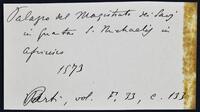 Palagro del Magistrato dei Savj
in quarta S. Michaelis in
Africisco
1573
Parti, vol. F, 23, c. 133